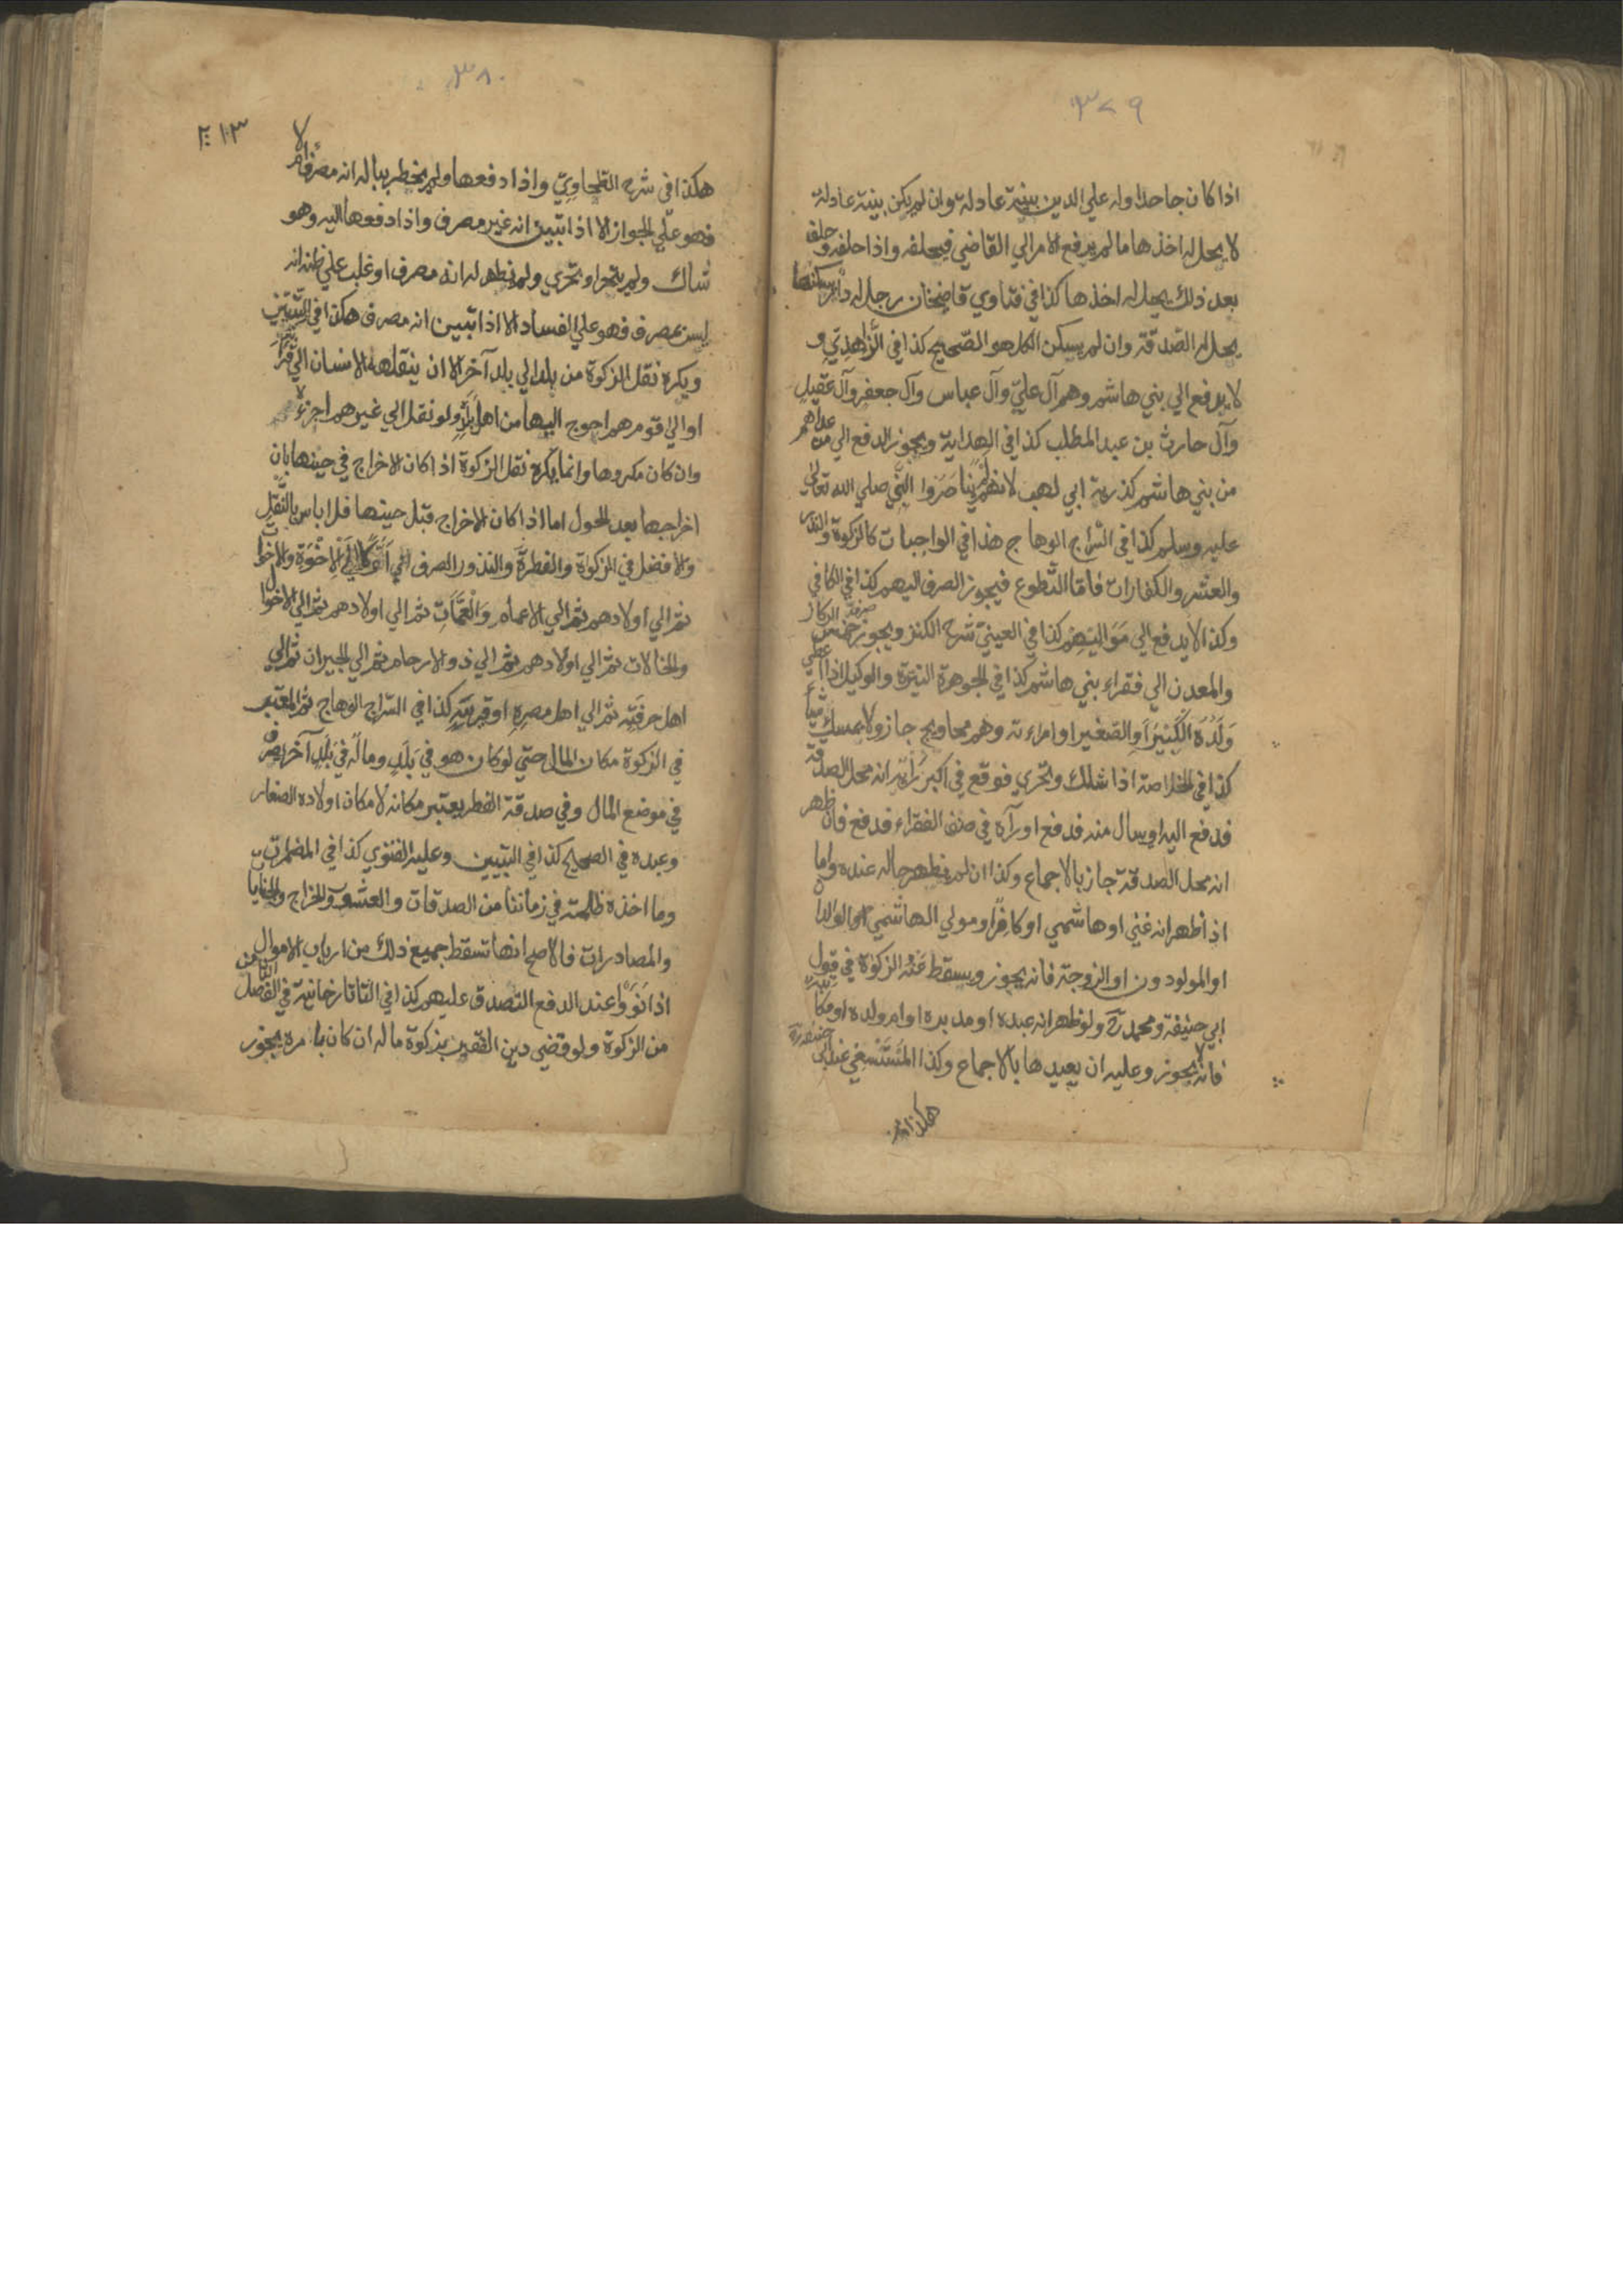 ٣٧٩
اذا كان جاحدا وله علي الدين بينة عادلة وان لم يكن بينة عادلة
لا يحل له اخذها ما لم يرفع الامر الي القاضي فيحلفه واذا حلفه وحلف
بعد ذلك يحل له اخذها كذا في فتاوي قاضيخان رجل له دار يسكنها
يحل له الصدقة وان لم يسكن الكل هو الصحيح كذا في الزاهدي و
لا يدفع الي بني هاشم وهم آل علي وآل عباس وآل جعفر وآل عقيل
وآل حارث بن عبد المطلب كذا في الهداية ويجوز الدفع الي من عداهم
من بني هاشم كذرية ابي لهب لانهم لم يناصروا النبي صلي الله تعالي
عليه وسلم كذا في السراج الوهاج هذا في الواجبات كالزكوة والنذر
والعشر والكفارات فاما التطوع فيجوز الصرف اليهم كذا في الكافي
وكذا لا يدفع الي مواليهم كذا في العيني شرح الكنز ويجوز صرف خمس الركاز
والمعدن الي فقراء بني هاشم كذا في الجوهرة النيرة والوكيل اذا اعطي
ولده الكبير او الصغير او امراءته وهم محاويج جاز ولا يمسك شيأ
كذا في الخلاصة اذا شك وتحري فوقع في اكبر رأيه انه محل الصدقة
فدفع اليه او سال منه فدفع او رآه في صف الفقراء فدفع فان ظهر
انه محل الصدقة جاز بالاجماع وكذا ان لم يظهر حاله عنده واما
اذا ظهر انه غني او هاشمي او كافرا ومولي الهاشمي او الوالدان
او المولودون او الزوجة فانه يجوز ويسقط عنه الزكوة في قول
ابي حنيفة ومحمد رح ولو ظهر انه عبده او مدبره او ام ولده او مكاتبه
فانه لا يجوز وعليه ان يعيدها بالاجماع وكذا المستسعي عند ابي حنيفة رح
هكذا في
٣٨٠
٢١٣
هكذا في شرح الطحاوي واذا دفعها ولم يخطر بباله انه مصرف ام لا
فهو علي الجواز الا اذا تبين انه غير مصرف واذا دفعها اليه وهو
شاك ولم يتحر او تحري ولم يظهر له انه مصرف او غلب علي ظنه انه
ليس بمصرف فهو علي الفساد الا اذا تبين انه مصرف هكذا في التبيين
ويكره نقل الزكوة من بلد الي بلد آخر الا ان ينقلها الانسان الي قرابته
او الي قوم هم احوج اليها من اهل بلده ولو نقل الي غيرهم اجزءه
وان كان مكروها وانما يكره نقل الزكوة اذا كان الاخراج في حينها بان
اخراجها بعد الحول اما اذا كان الاخراج قبل حينها فلا باس بالنقل
والافضل في الزكواة والفطرة والنذور الصرف اولا الي الاخوة والاخوات
ثم الي اولادهم ثم الي الاعمام والعمات ثم الي اولادهم ثم الي الاخوال
والخالات ثم الي اولادهم ثم الي ذوو الارحام ثم الي الجيران ثم الي
اهل حرفته ثم الي اهل مصره او قريته كذا في السراج الوهاج ثم المعتبر
في الزكوة مكان المال حتي لو كان هو في بلد وماله في بلد آخر يفرق
في موضع المال وفي صدقة الفطر يعتبر مكانه لا مكان اولاده الصغار
وعبده في الصحيح كذا في التبيين وعليه الفتوي كذا في المضمرات
وما اخذه ظلمة في زماننا من الصدقات والعشور والخراج والجبايا
والمصادرات فالاصح انها تسقط جميع ذلك من ارباب الاموال
اذا نووا عند الدفع التصدق عليهم كذا في التاتارخانية في الفصل الثامن
من الزكوة ولو قضي دين الفقير بزكوة ماله ان كان بامره يجوز